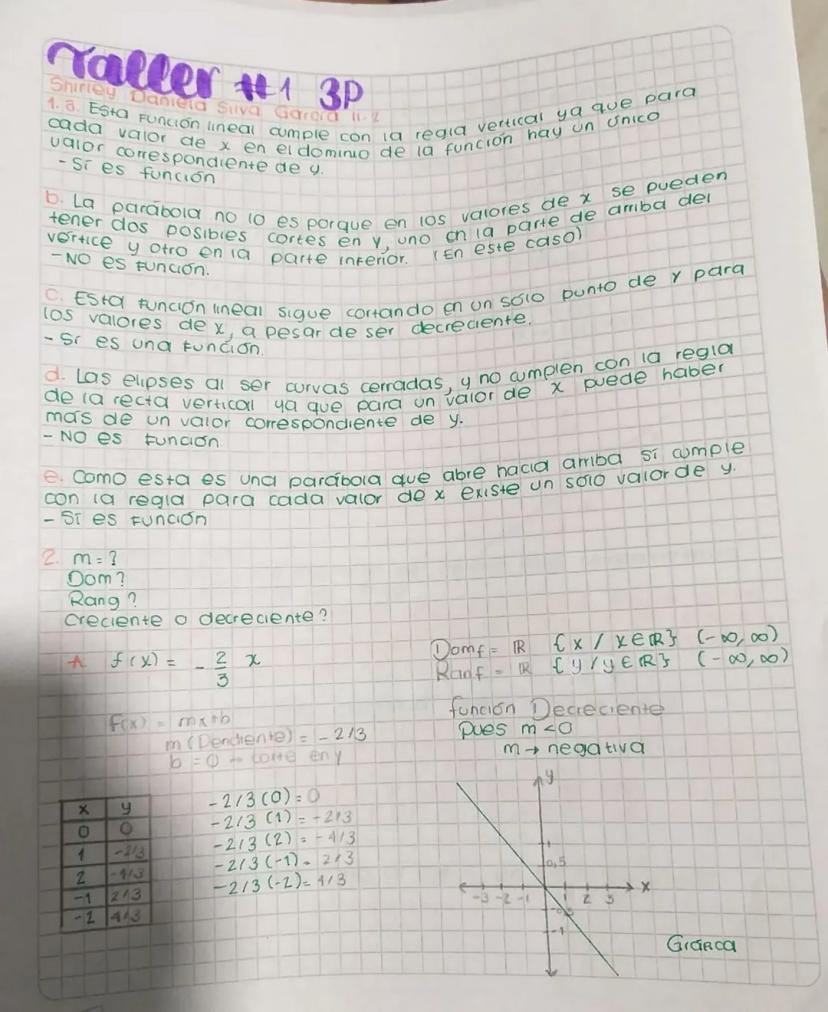 Taller #1 3P
Shirley Daniela Silva Garcia 11-2
1. a. Esta función lineal cumple con la regla vertical ya que para
cada valor de x en el dominio de la función hay un único
valor correspondiente de y.
- Sí es función
b. La parábola no lo es porque en los valores de x se pueden
tener dos posibles cortes en y, uno en la parte de arriba del
vértice y otro en la parte inferior. (En este caso)
- NO es función.
c. Esta función lineal sigue cortando en un sólo punto de y para
los valores de x, a pesar de ser decreciente.
- Sí es una función.
d. Las elipses al ser curvas cerradas, y no cumplen con la regla
de la recta vertical ya que para un valor de x puede haber
más de un valor correspondiente de y.
- NO es función
e. Como esta es una parábola que abre hacia arriba sí cumple
con la regla para cada valor de x existe un sólo valor de y.
- Sí es función
2. m=?
Dom?
Rang?
Creciente o decreciente?
A. f(x) = - 2/3 x
Domf = ℝ {x / x ∈ ℝ} (-∞, ∞)
Ranf = ℝ {y / y ∈ ℝ} (-∞, ∞)
f(x) = mx+b
m (Pendiente) = -2/3
b = 0 → corte en y
función Decreciente
pues m<0
m → negativa
x y
0 0
1 -2/3
2 -4/3
-1 2/3
-2 4/3
-2/3 (0) = 0
-2/3 (1) = -2/3
-2/3 (2) = -4/3
-2/3 (-1) = 2/3
-2/3 (-2) = 4/3
y
1
0,5
-3 -2 -1 1 2 3 x
-0,5
-1
Gráfica